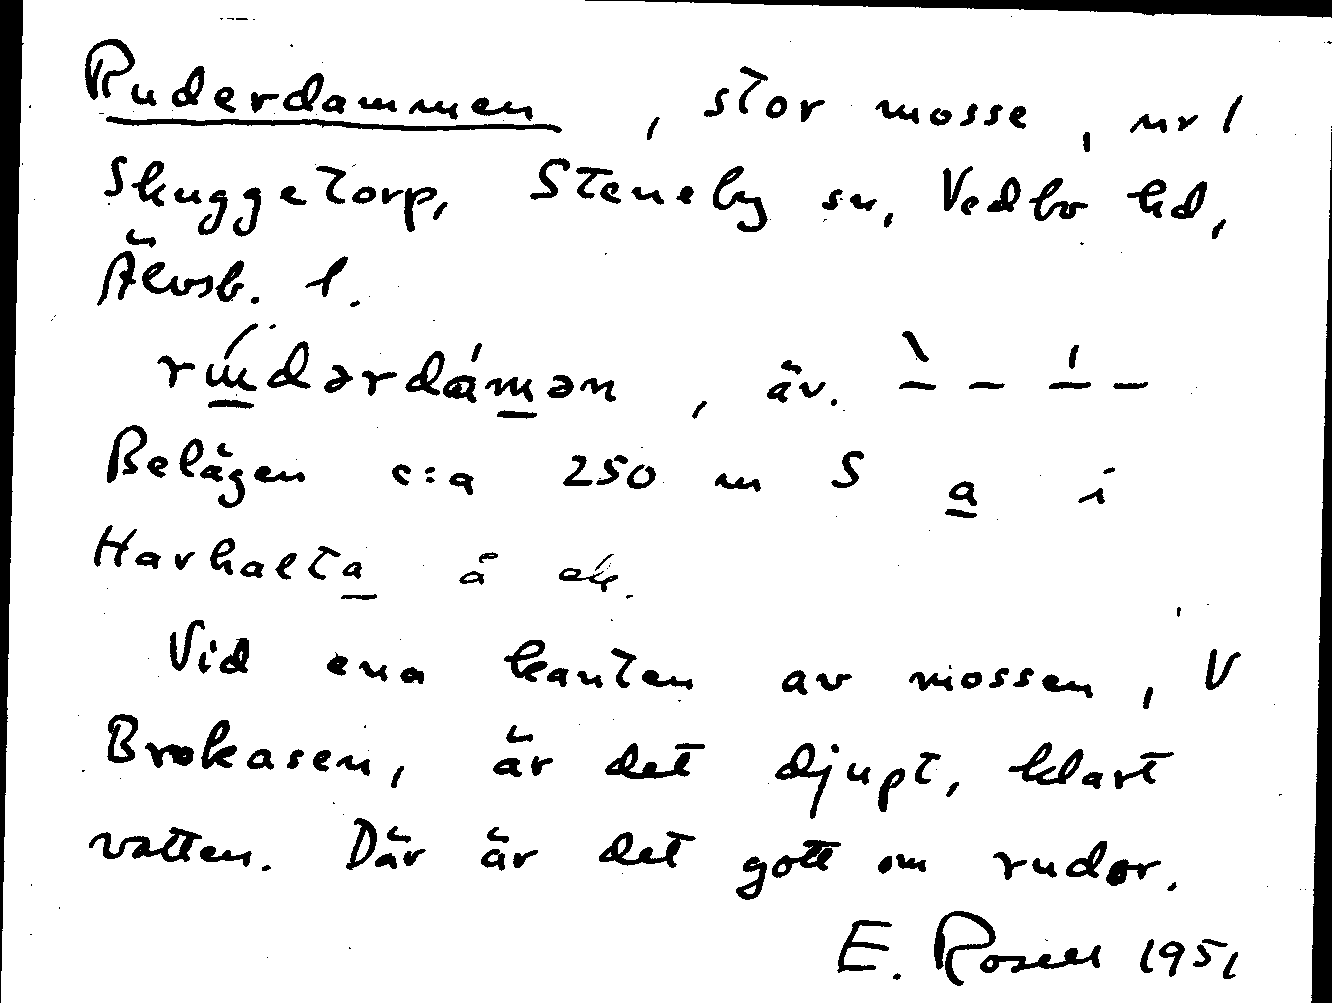 Ruderdammen, stor mosse, nr 1
Skuggetorp, Steneby sn, Vedbo hd,
Älvsb. l.
, äv.
Belägen c:a 250 m S a i
Harhalta å ek.
Vid ena kanten av mossen, V
Brokasen, är det djupt, klart
vatten. Där är det gott om rudor.
E. Rosell 1951